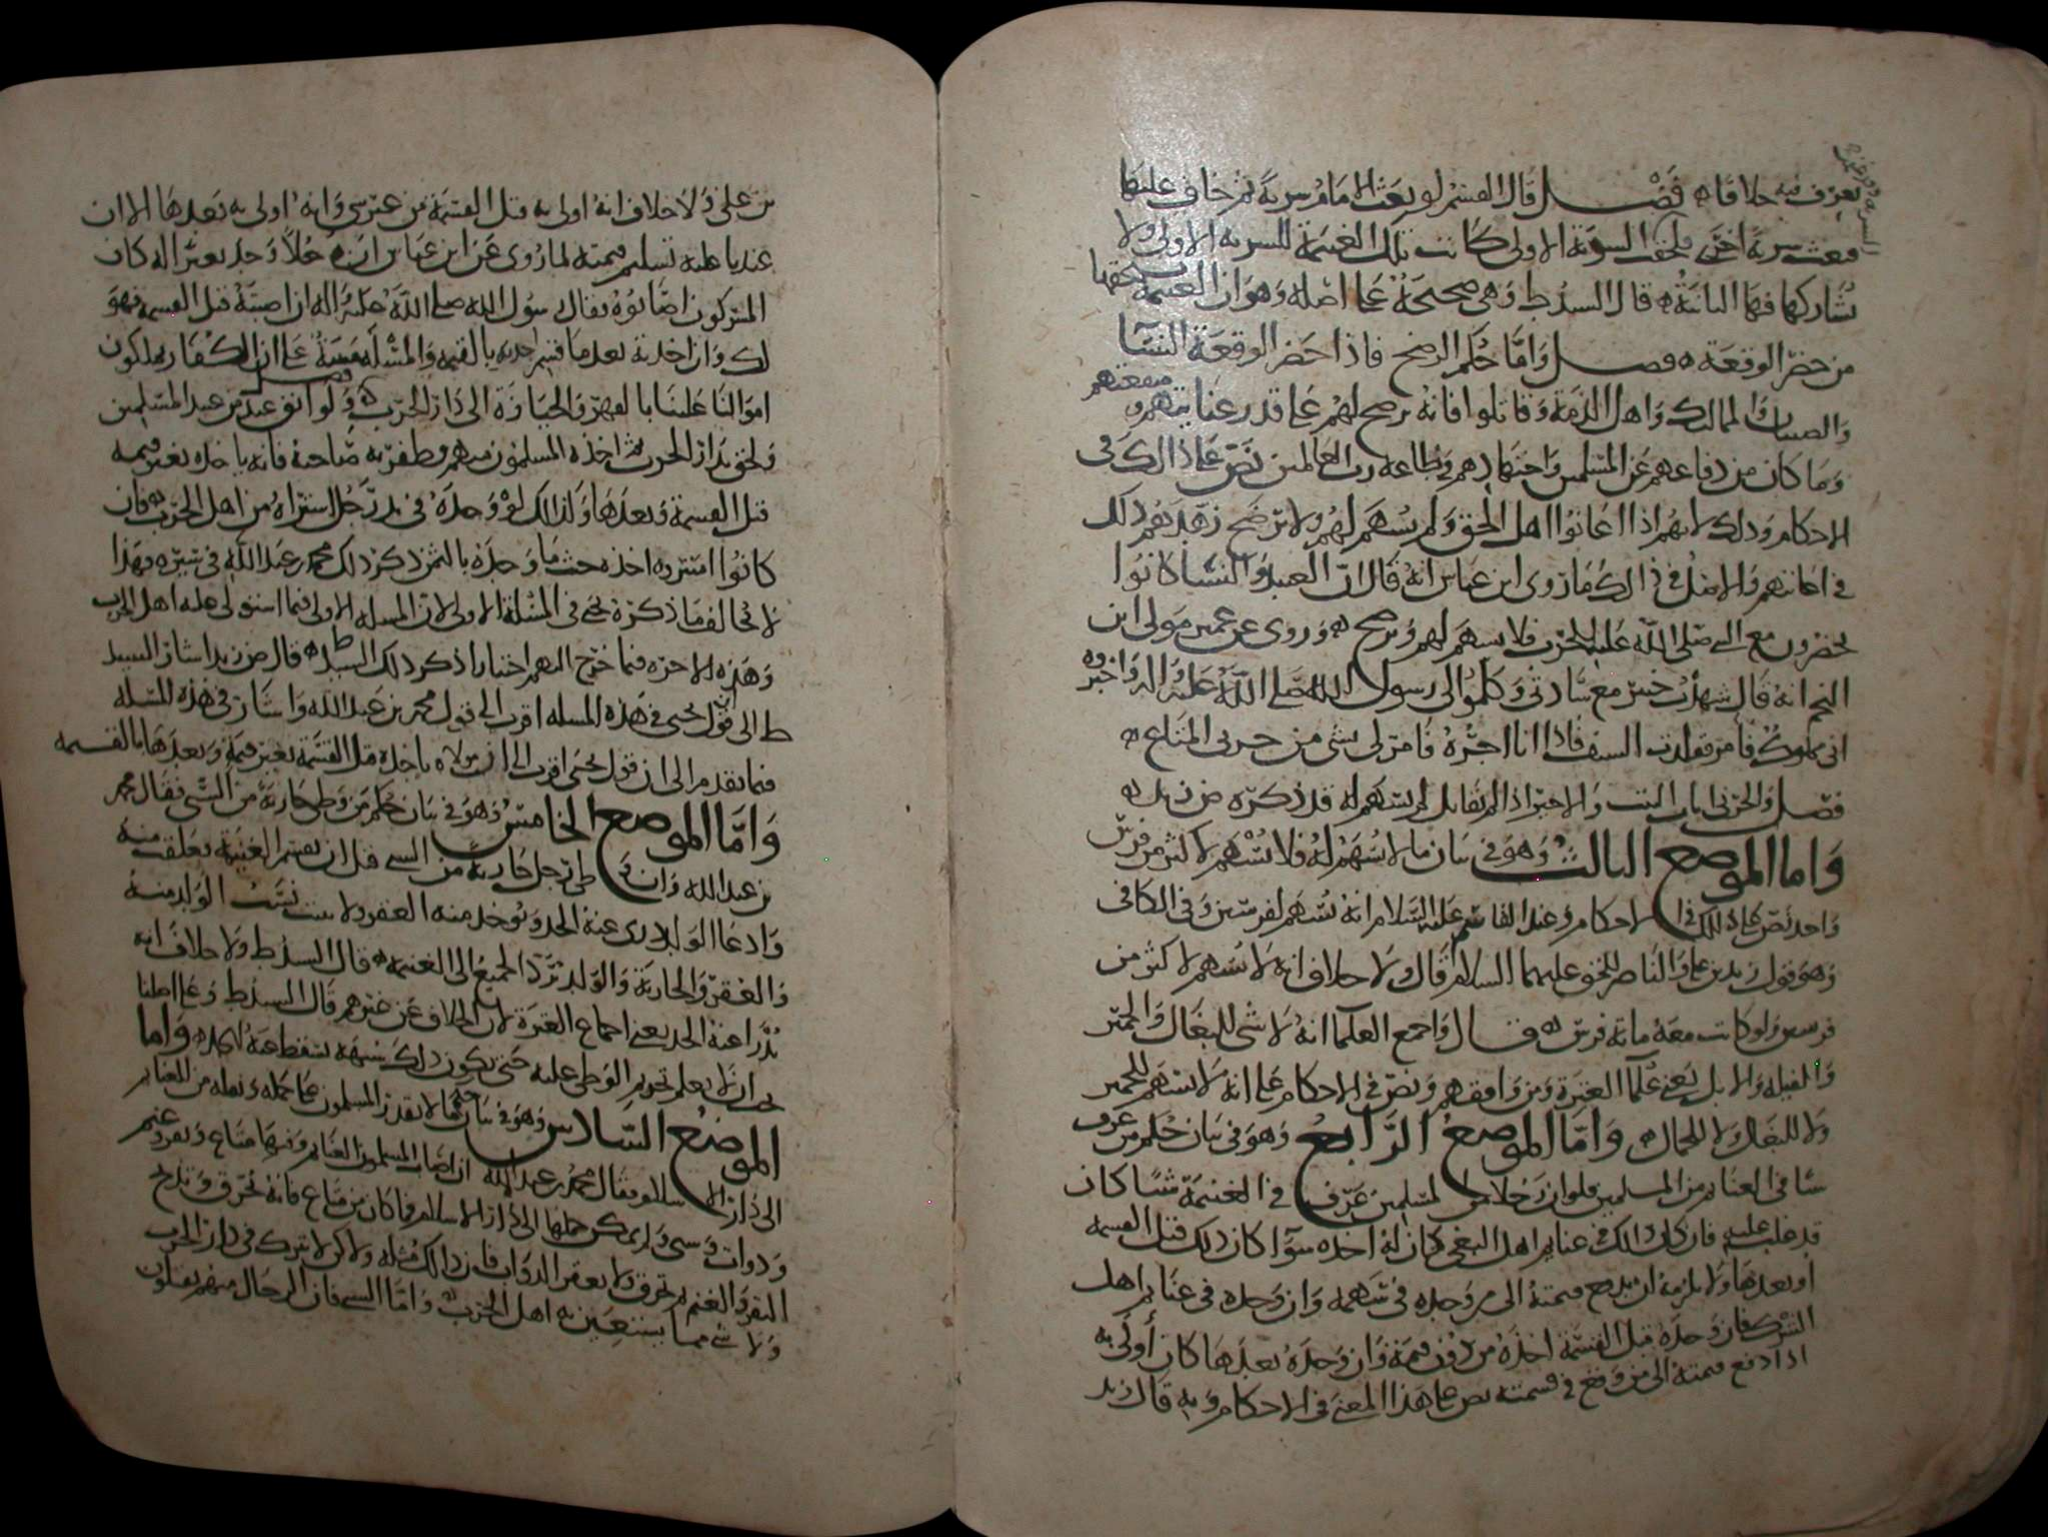 يعرف فيه خلافا ه فصل قال القسم لو بعث الامام سرية ثم خاف عليها
فبعث سرية اخرى فلحقت السرية الاولى كانت تلك الغنيمة للسرية الاولى ولا
تشاركها فيها الثانية ه قال السيد ط وهي صحيحة على اصله وهو ان الغنيمة يستحقها
من حضر الوقعة ه فصل واما حكم الرضخ فاذا حضر الوقعة النسا
والصبيان والمماليك واهل الذمة وقاتلوا فانه يرضح لهم على قدر عنايتهم ومنفعتهم
وما كان من دفاعهم عن المسلمين واجتهادهم في طاعة رب العالمين نص على ذلك في
الاحكام وذلك لانهم اذا اعانوا اهل الحق ولم يسهم لهم ولا يرضخ زهدهم ذلك
في اعانتهم والاصل في ذلك ما روى ابن عباس انه قال ان العبيد والنسا كانوا
يحضرون مع النبي صلى الله عليه الحرب فلا يسهم لهم ويرضح ه وروى عن عمير مولى ابن
اللحم انه قال شهدت خيبر مع ساداتي وكلموا لي رسول الله صلى الله عليه واله واخبروه
اني مملوك فامر فقلدت السيف فاذا انا اجره فامر لي بشي من خرثي المتاع ه
فصل والحربي والاجير اذا لم يقاتل لم يسهم له قد ذكره ض زيد ه
واما الموضع الثالث وهو في بيان ما لا يسهم له فلا يسهم لاكثر من فرس
واحد نص على ذلك في الاحكام وعند القاسم عليه السلام انه يسهم لفرسين وفي الكافي
وهو قول زيد بن علي والناصر للحق عليهما السلام قال ولا خلاف انه لا يسهم لاكثر من
فرسين ولو كانت معه مائة فرس ه قال واجمع العلما انه لا شي للبغال والحمير
والفيلة والابل يعني علما العترة ومن وافقهم ونص في الاحكام على انه لا يسهم للحمير
ولا للبغال ولا للجمال ه واما الموضع الرابع وهو في بيان حكم من عرف
شيا في الغنايم من المسلمين فلو ان رجلا من المسلمين عرف في الغنيمة شيا كان
قد غلب عليه فان كان ذلك في غنايم اهل البغي كان له اخذه سوآ كان ذلك قبل القسمة
او بعدها ولا يلزمه ان يدفع قيمته الى من وجده في سهمه وان وجده في غنايم اهل
الشرك فان وجده قبل القسمة اخذه من دون قيمة وان وجده بعدها كان أولى به
اذا دفع قيمته الى من وقع في قسمته نص على هذا المعنى في الاحكام وبه قال زيد
بن علي ولا خلاف انه اولى به قبل القسمة من غير شي وانه اولى به بعدها الا ان
عندنا عليه تسليم قيمته لما روى عن ابن عباس ان رجلا وجد بعيرا له كان
المشركون اصابوه فقال رسول الله صلى الله عليه واله ان اصبته قبل القسمة فهو
لك وان اخذته بعد ما قسم اخذته بالقيمة والمسئلة مبنية على ان الكفار يملكون
اموالنا علينا بالقهر والحيازة الى دار الحرب ه فصل ولو ابق عبد من عبيد المسلمين
ولحق بدار الحرب ثم اخذه المسلمون منهم وظفر به صاحبه فانه ياخذه بغير قيمة
قبل القسمة وبعدها وكذلك لو وجده في يد رجل اشتراه من اهل الحرب ه فان
كانوا اشتروه اخذه حيث ما وجده بالثمن ذكر ذلك محمد بن عبد الله في سيره وهذا
لا يخالف ما ذكره يحيى في المسئلة الاولى لان المسله الاولى فيما استولى عليه اهل الحرب
وهذه الاخرة فيما خرج اليهم اختيارا ذكر ذلك السيد ط ه قال ض زيد اشار السيد
ط الى ان قول يحيى في هذه المسله اقرب الى قول محمد بن عبد الله واشار في هذه المسله
فيما تقدم الى ان قول يحيى اقرب الى ان مولاه ياخذه قبل القسمة بغير قيمة وبعدها بالقسمه
واما الموضع الخامس وهو في بيان حكم من وطي جارية من السبي فقال محمد
بن عبد الله وان وطي رجل جارية من السبي قبل ان يقسم الغنيمة فعلقت منه
وادعا الولد درى عنه الحد ويوخذ منه العقر ولا يثبت نسب الولد منه
والعقر والجارية والولد ترد الجميع الى الغنيمة ه قال السيد ط ولا خلاف انه
يدرا عنه الحد يعني اجماع العترة لان الخلاف عن غيرهم قال السيد ط وعلى اصلنا
يجب ان لا يعلم تحريم الوطي عليه حتى يكون ذلك شبهة تسقط عنه الحد ه واما
الموضع السادس وهو في بيان حكم ما لا يقدر المسلمون على حمله ونقله من الغنايم
الى دار الاسلام فقال محمد بن عبد الله ان اصاب المسلمون الغنايم وفيها متاع وبقر وغنم
ودواب وسبي ولم يمكن حملها الى دار الاسلام فما كان من متاع فانه يحرق وتذبح
البقر والغنم ثم تحرق ولا يعقر الدواب فان ذلك مثله ولاكن لا تترك في دار الحرب
ولا شي مما يستعين به اهل الحرب ه واما السبي فان الرجال منهم يقتلون